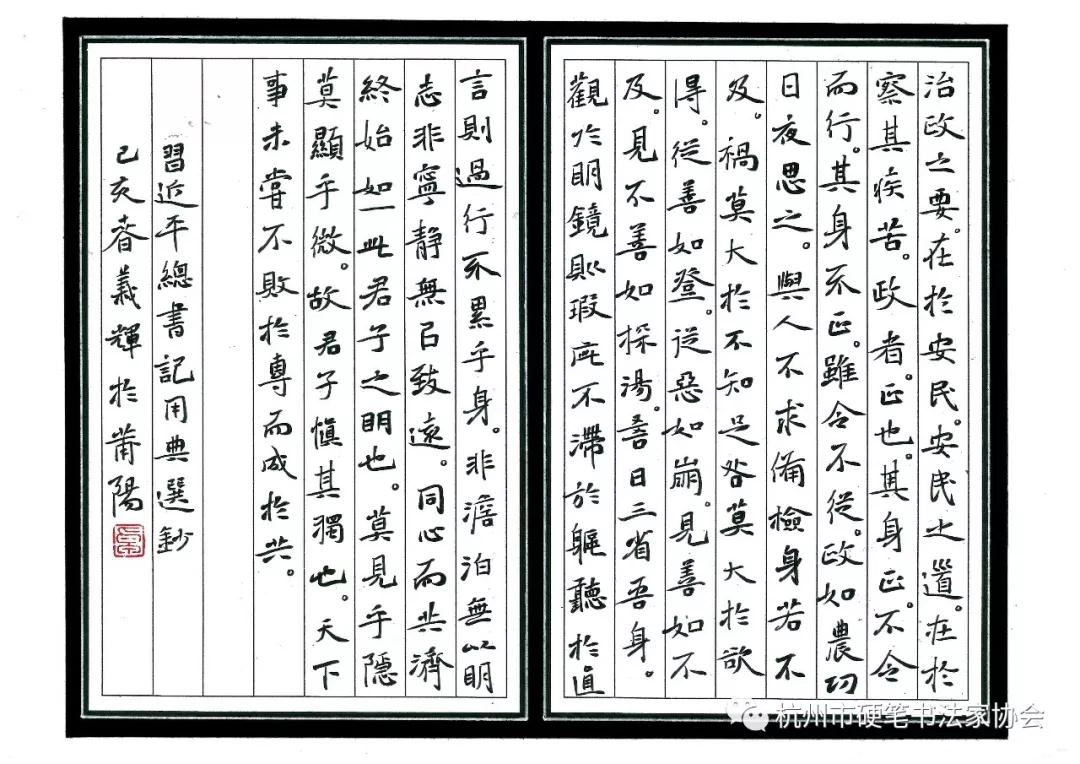 治政之要。在於安民。安民之道。在於
察其疾苦。政者。正也。其身正。不令
而行。其身不正。雖令不從。政如農功
日夜思之。與人不求備檢身若不
及。禍莫大於不知足咎莫大於欲
得。從善如登。從惡如崩。見善如不
及。見不善如探湯。吾日三省吾身。
觀於明鏡則瑕疵不滯於軀聽於直
言則過行不累乎身。非澹泊無以明
志非寧靜無以致遠。同心而共濟
終始如一此君子之朋也。莫見乎隱
莫顯乎微。故君子慎其獨也。天下
事未嘗不敗於專而成於共。
習近平總書記用典選鈔
己亥春義輝於莆陽
杭州市硬笔书法家协会